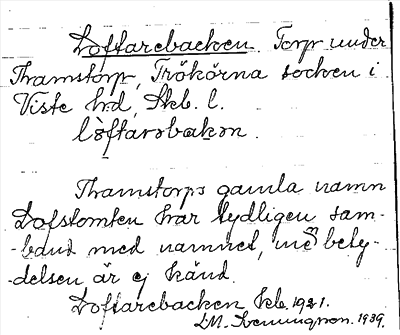 Doffarebacken. Torp under
Thamstorp, Trökörna socken i
Viste hd, Skb. l.
Thamstorps gamla namn
Dofstomten har tydligen sam-
-band med namnet, men bety-
-delsen är ej känd.
Doffarebacken kb. 1921.
1939.